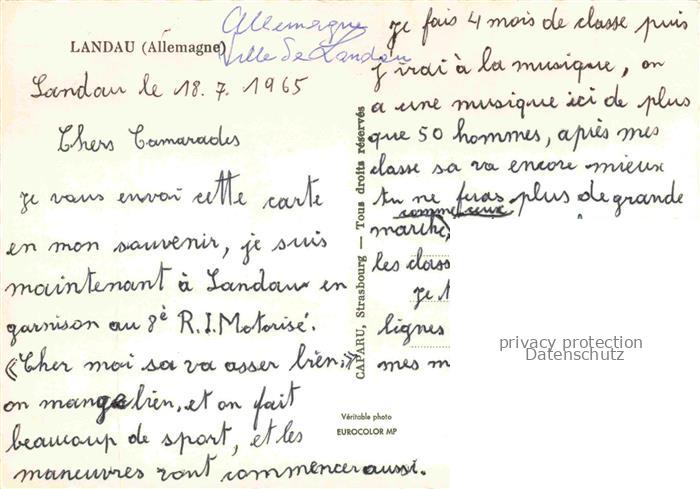 LANDAU (Allemagne)
Allemagne
Ville de Landau
Landau le 18.7.1965
Chers Camarades
je vous envoi cette carte
en mon souvenir, je suis
maintenant à Landau en
garnison au 8è R.I.Motorisé.
«Cher moi sa va asser bien,»
on mange bien, et on fait
beaucoup de sport, et les
manœuvres vont commencer aussi.
CAP ARU, Strasbourg — Tous droits réservés
Véritable photo
EUROCOLOR MP
je fais 4 mois de classe puis
j'irai à la musique, on
a une musique ici de plus
que 50 hommes, après mes
classe sa va encore mieux
tu ne feras plus de grande
comme ceux
marche,
les class
je t
lignes
mes m
privacy protection
Datenschutz